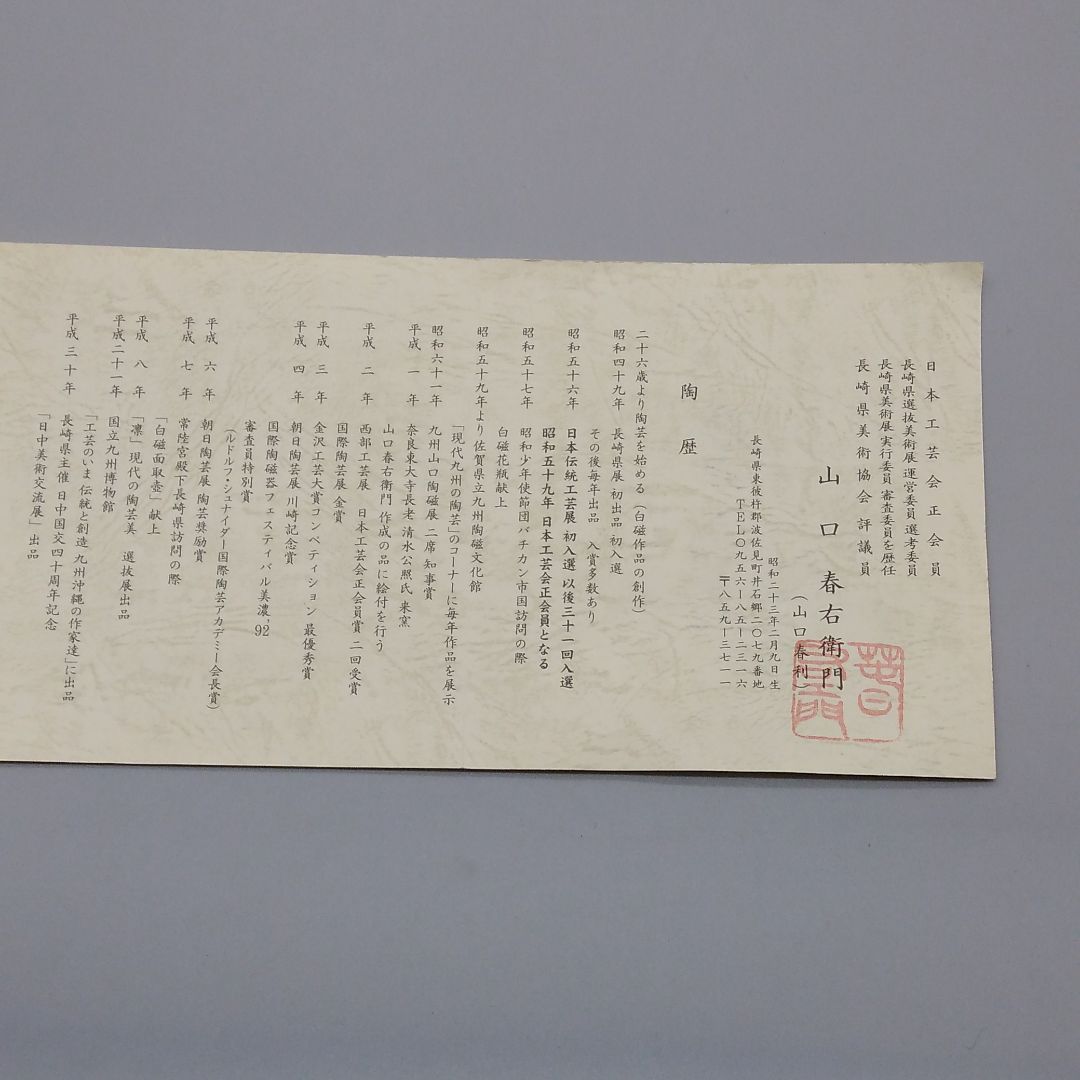 日本工芸会正会員
長崎県選抜美術展 運営委員 選考委員
長崎県美術展 実行委員 審査委員を歴任
長崎県美術協会評議員
山口 春右衛門
(山口春利)
昭和二十三年二月九日生
長崎県東彼杵郡波佐見町井石郷二〇七九番地
TEL〇九五六ー八五ー二三一六
〒八五九ー三七一一
陶歴
二十六歳より陶芸を始める(白磁作品の創作)
昭和四十九年 長崎県展 初出品 初入選
その後毎年出品 入賞多数あり
昭和五十六年 日本伝統工芸展 初入選 以後三十一回入選
昭和五十九年 日本工芸会正会員となる
昭和五十七年 昭和少年使節団バチカン市国訪問の際
白磁花瓶献上
昭和五十九年より 佐賀県立九州陶磁文化館
「現代九州の陶芸」のコーナーに毎年作品を展示
昭和六十一年 九州山口陶磁展 二席 知事賞
平成 一 年 奈良東大寺長老 清水公照氏 来窯
山口春右衛門 作成の品に絵付を行う
平成 二 年 西部工芸展 日本工芸会正会員賞 二回受賞
国際陶芸展 金賞
平成 三 年 金沢工芸大賞コンペティション 最優秀賞
平成 四 年 朝日陶芸展 川崎記念賞
国際陶磁器フェスティバル美濃,92
審査員特別賞
(ルドルフ・シュナイダー国際陶芸アカデミー会長賞)
平成 六 年 朝日陶芸展 陶芸奨励賞
平成 七 年 常陸宮殿下長崎県訪問の際
「白磁面取壺」献上
平成 八 年 「凛」現代の陶芸美 選抜展出品
平成二十一年 国立九州博物館
「工芸のいま 伝統と創造 九州沖縄の作家達」に出品
平成三十年 長崎県主催 日中国交四十周年記念
「日中美術交流展」出品